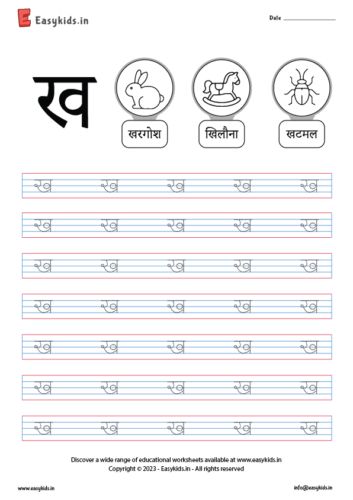 Easykids.in
Date
ख
खरगोश खिलौना खटमल
ख ख ख ख ख
ख ख ख ख ख
ख ख ख ख ख
ख ख ख ख ख
ख ख ख ख ख
ख ख ख ख ख
ख ख ख ख ख
Discover a wide range of educational worksheets available at www.easykids.in
Copyright © 2023 - Easykids.in - All rights reserved
www.easykids.in info@easykids.in